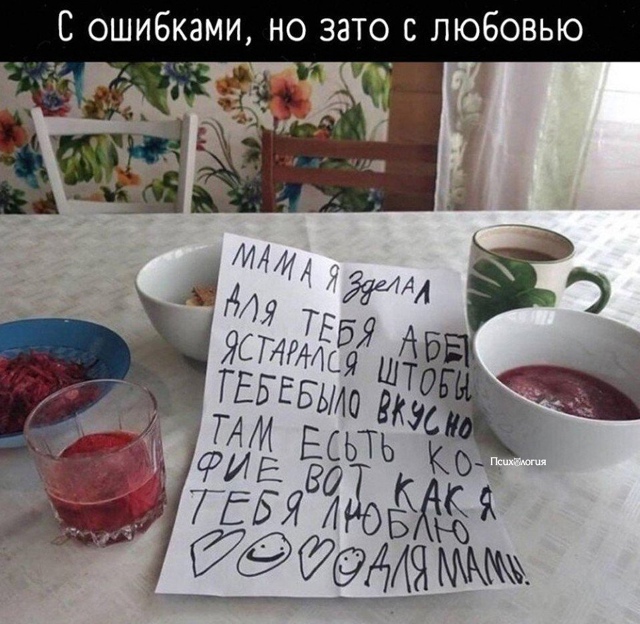 С ошибками, но зато с любовью
МАМА Я ЗДЕЛАЛ
ДЛЯ ТЕБЯ АБЕТ
ЯСТАРАЛСЯ ШТОБЫ
ТЕБЕБЫЛО ВКУСНО
ТАМ ЕСЬТЬ КО-
ФИЕ ВОТ КАК Я
ТЕБЯ ЛЮБЛЮ
ДЛЯ МАМЫ!
Психология